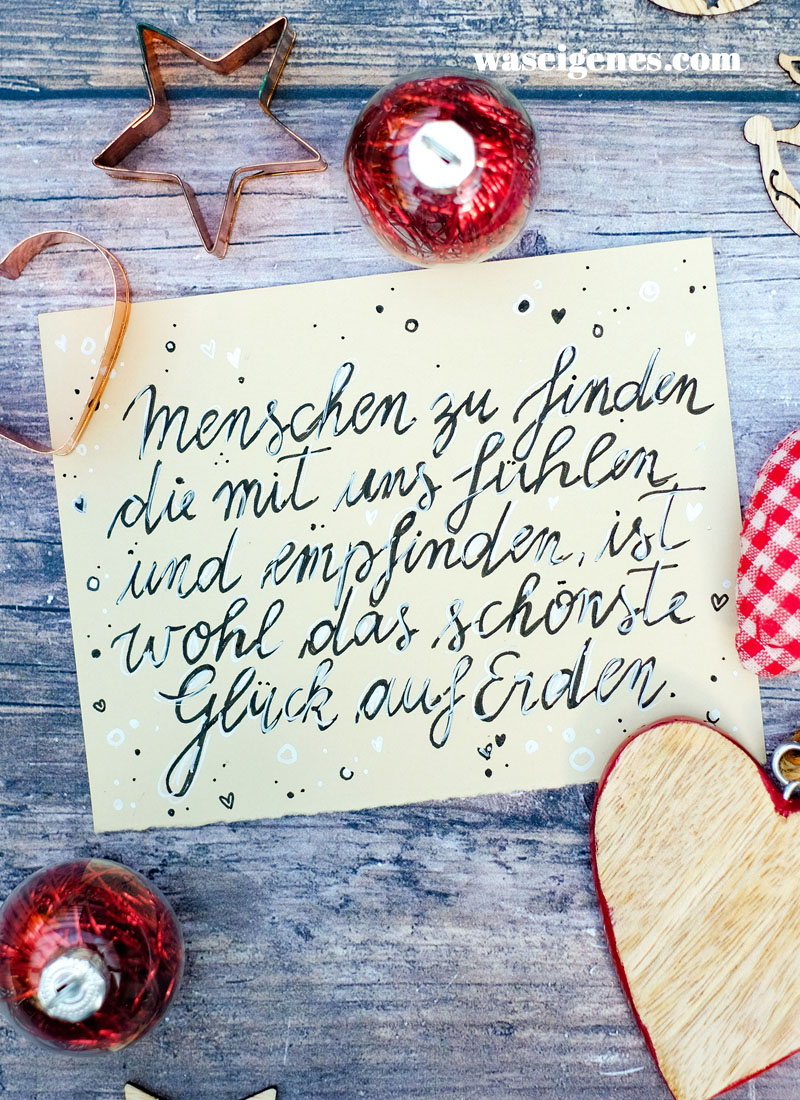 waseigenes.com
Menschen zu finden
die mit uns fühlen
und empfinden, ist
wohl das schönste
Glück auf Erden.